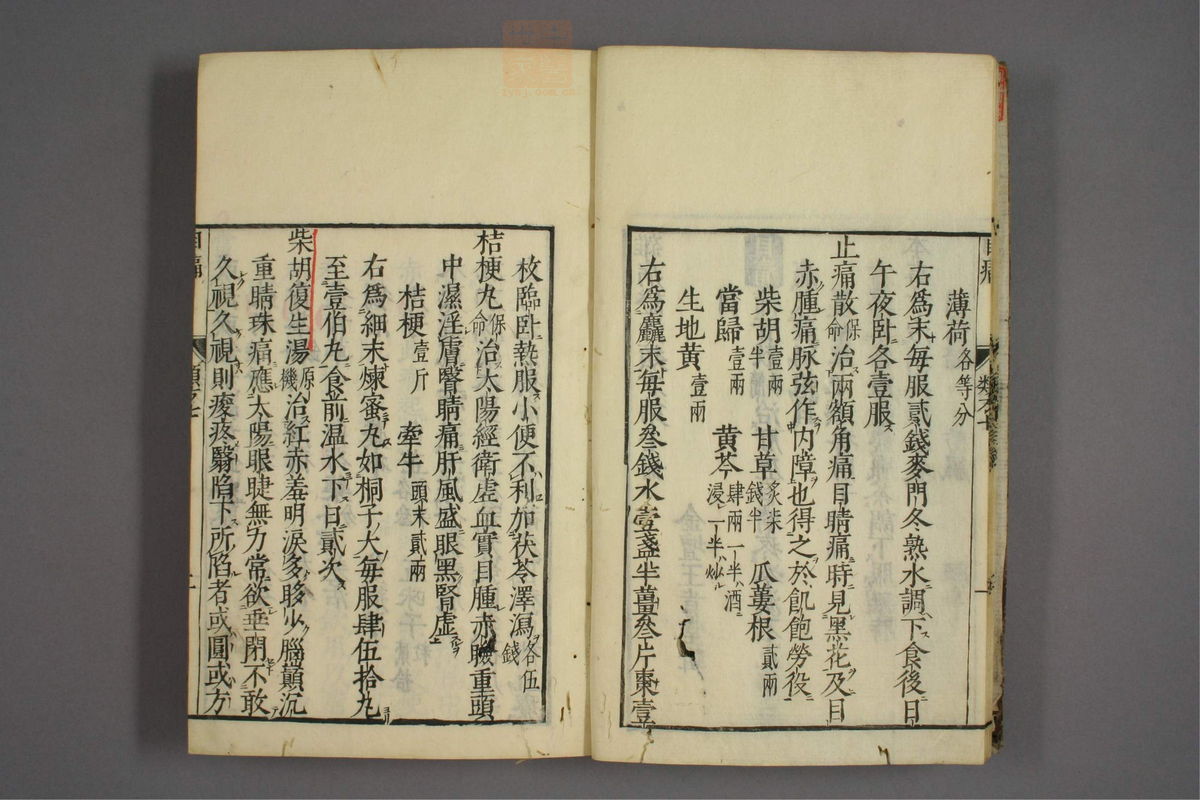 薄荷各等分
右爲末每服貳錢麥門冬熟水調下食後日
午夜卧各壹服
止痛散保命治兩額角痛目睛痛時見黑花及目
赤腫痛脉弦作内障也得之於飢飽勞役
柴胡壹兩半 甘草炙柒錢半 瓜蔞根貳兩
當歸壹兩 黄芩肆兩一半酒浸一半炒
生地黄壹兩
右爲麤末每服叁錢水壹盞半薑叁片棗壹
枚臨卧熱服小便不利加茯苓澤瀉各伍錢
桔梗丸保命治太陽經衛虛血實目腫赤瞼重頭
中濕淫膚瞖睛痛肝風盛眼黑腎虚
桔梗壹斤 牽牛頭末貳兩
右爲細末煉蜜丸如桐子大每服肆伍拾丸
至壹伯丸食前温水下日貳次
柴胡復生湯原機治紅赤羞明淚多眵少腦顚沉
重睛珠痛應太陽眼睫無力常欲垂閉不敢
久視久視則痠疼翳陷下所陷者或圓或方
目痛